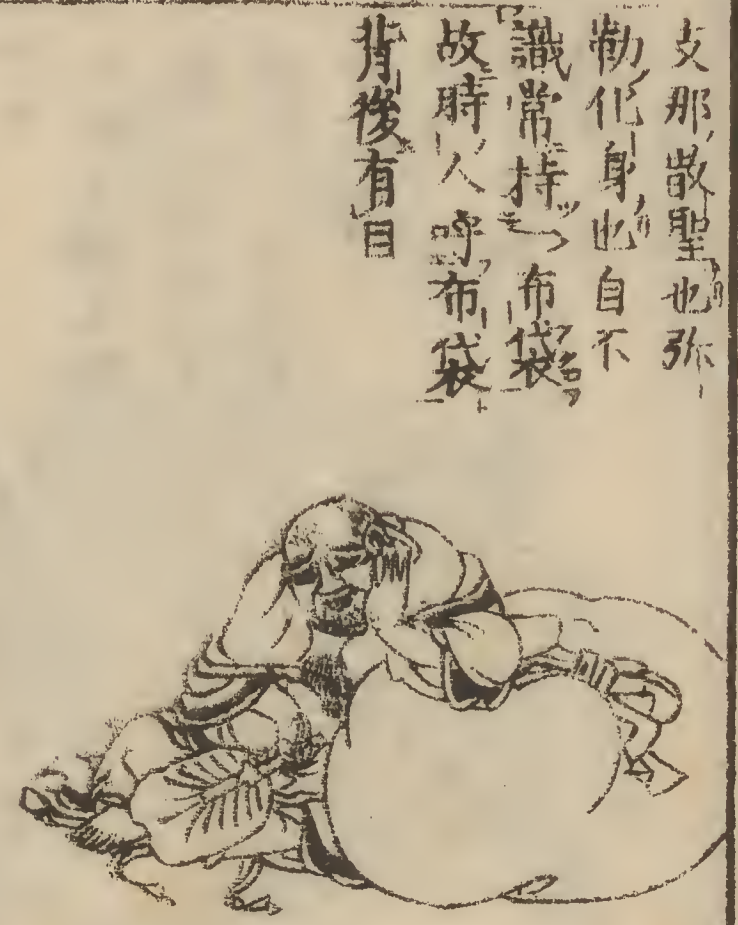 支那散聖也弥
勒化身也自不
識常持布袋
故時人呼布袋
背後有目